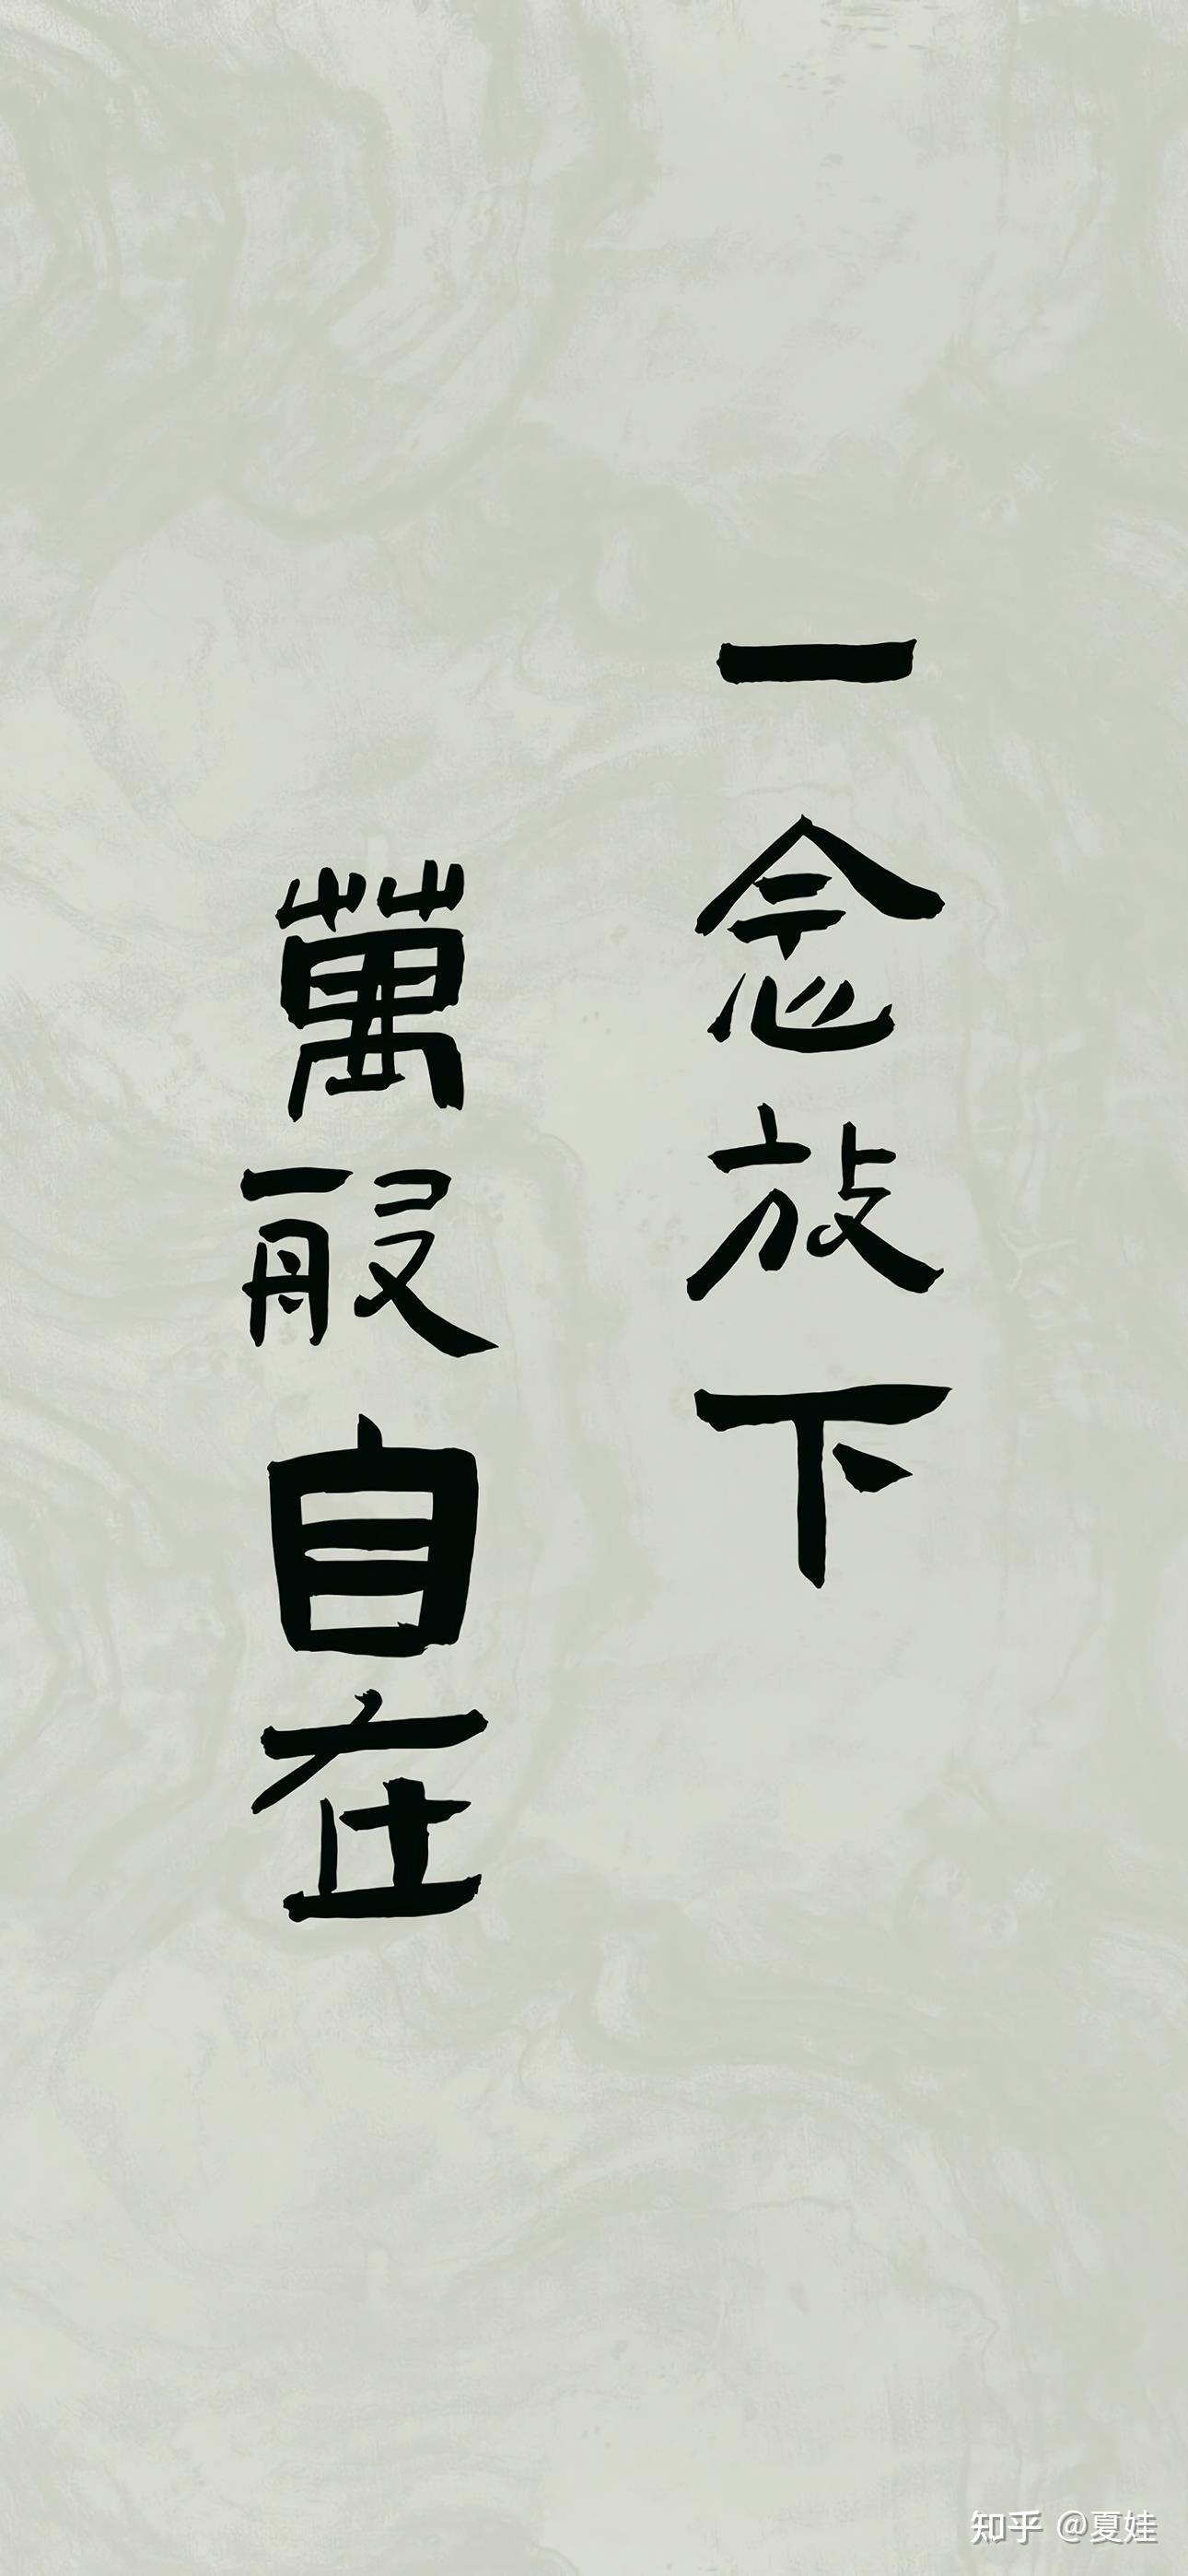 一念放下
萬般自在
知乎 @夏娃